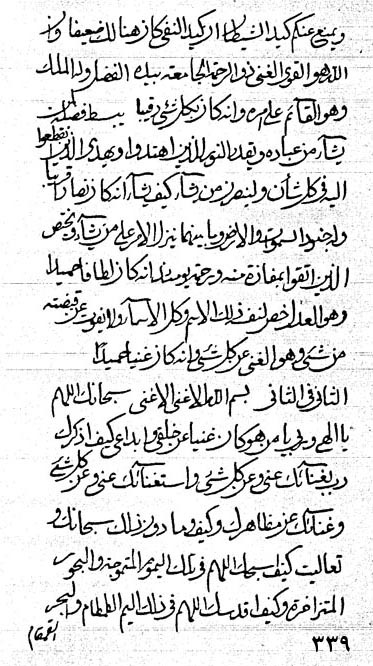 و يمنع عنكم كيد الشيطان ان كيد النفي كان هنالك ضعيفا و ان
الله هو القوى الغنى ذو الرحمة الجامعة بيده الفضل و له الملك
و هو القائم على امره و انه كان بكل شئ رقيبا يبسط فضله لمن
يشآء من عباده و يقدر النور للذين اهتدوا و يهدى الذين انقطعوا
اليه فى كل شأن و لينصرن من يشآء كيف يشآء انه كان نصارا قريبا
و له جنود السموات و الارض و ما بينهما ينزل الامر على من يشآء و يختص
الذين اتقوا بمفازة منه و رحمة يومئذ انه كان لطافا حميدا
و هو العدل خص لنفسه ذلك الاسم و كل الاسمآء و لا يفوت عن قبضته
من شئ و هو الغنى عن كل شئ و انه كان غنيا حميدا
الثانى فى الثانى بسم الله الاغنى الاغنى سبحانك اللهم
يا الهى و ربى يا من هو كان غنيا عن خلقى و ابداعى كيف اذكرك
بغنآئك عنى و عن كل شئ و استغنآئك عنى و عن كل شئ
و غنآئك عن مظاهرك و كيف و ما دون ذلك سبحانك و
تعاليت كيف اسبحك اللهم فى تلك اليموم المتموجة و البحور
المتزاخرة و كيف اقدسك اللهم فى ذلك اليم الطمطام و البحر
القمقام
٣٣٩